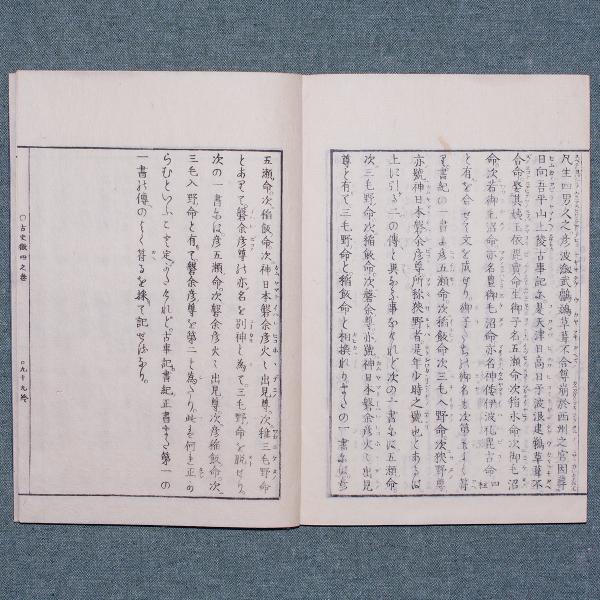 凡生四男久之彦波瀲武鸕鷀草葺不合尊崩於西州之宮因葬
日向吾平山上陵古事記に是天津日高日子波限建鵜草葺不
合命娶其姨玉依毘賣命生御子名五瀬命次稲氷命次御毛沼
命次若御毛沼命亦名豊御毛沼命亦名神倭伊波礼毘古命四柱
と有を合せて文を成せり御子たちの御名も次第も
書紀の一書に彦五瀬命次稲飯命次三毛入野命次狭野尊
亦號神日本磐余彦尊所称狭野者是年少時之號也とあるは
上に引る二の傳と異なる事なけれど次の一書には五瀬命
次三毛野命次稲飯命次磐余彦尊亦號神日本磐余彦火々出見
尊と有て三毛野命と稲飯命と相換れりまたの一書には彦
五瀬命次稲飯命次神日本磐余彦火々出見尊次稚三毛野命
とあるて磐余彦尊の亦名を別神と為て三毛野命を脱せり
次の一書には彦五瀬命次磐余彦火々出見尊次彦稲飯命次
三毛入野命と有て磐余彦尊を第二と為たり此は何を正の
らむといふこと定めがたけれど古事記書紀正書また第一の
一書の傳のよく符るを採て記せるなり
○古史徴四之巻
○九十九終